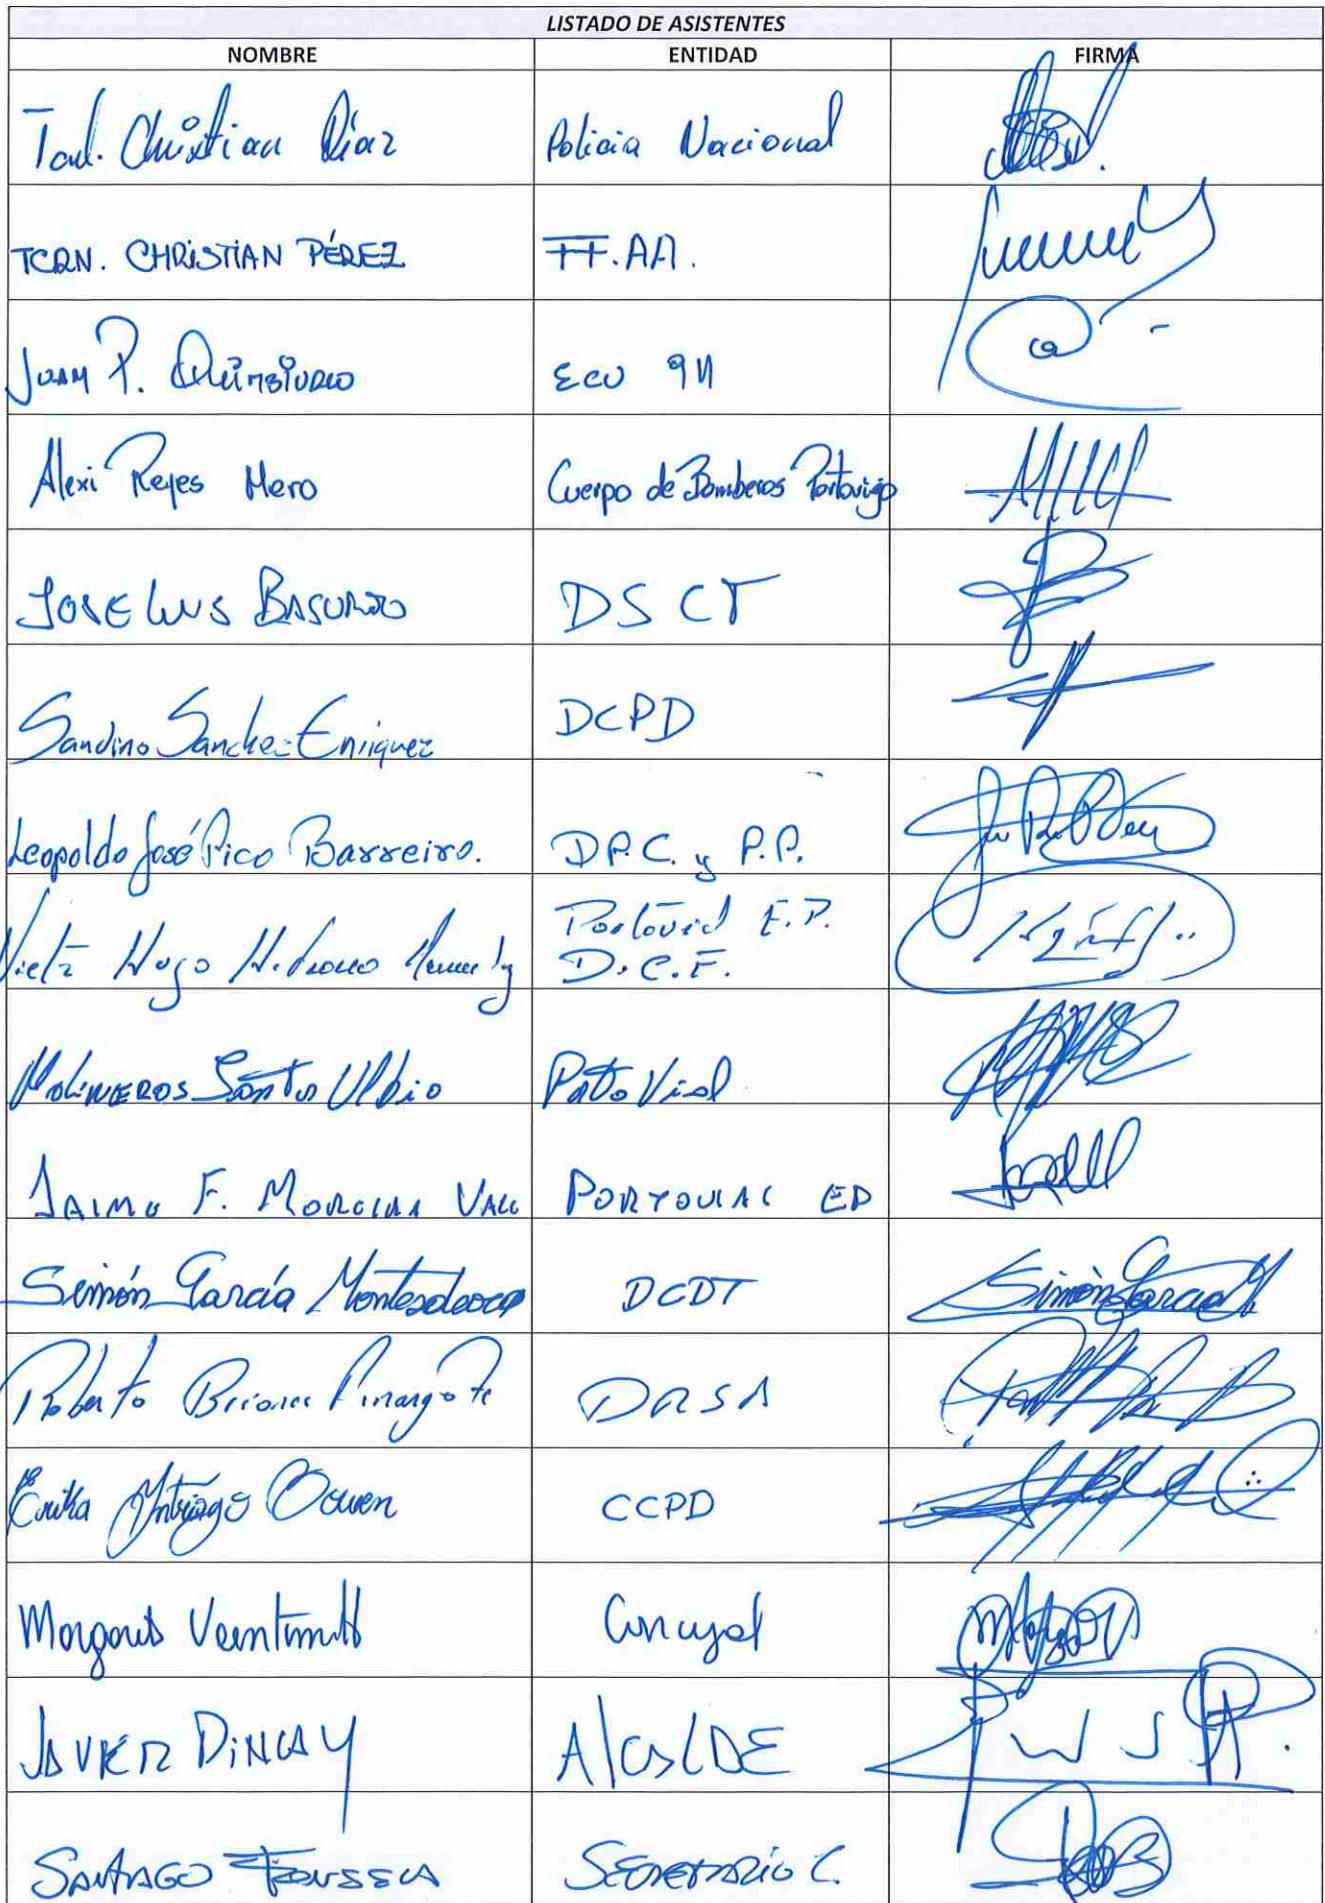 LISTADO DE ASISTENTES
NOMBRE ENTIDAD FIRMA
Tcnl. Christian Díaz Policia Nacional
TCRN. CHRISTIAN PÉREZ FF.AA.
JUAN P. ECU 911
Alexi Reyes Mero Cuerpo de Bomberos Portoviejo
JOSE LUIS BASURTO DSCT
Sandino Sanchez Enriquez DCPD
Leopoldo José Pico Barreiro. D.P.C. y P.P.
Hugo E.P.
D.C.F.
MOLINEROS Santos Ulbio PortoVial
JAIME F. PORTOVIAL EP
Simón García Montesdeoca DCDT Simón García M
Roberto Briones Pinargote DRSA
Erika Intriago Bowen CCPD
Concejal
JAVIER PINCAY AlcalDE
SANTIAGO FONSECA SECRETARIO C.